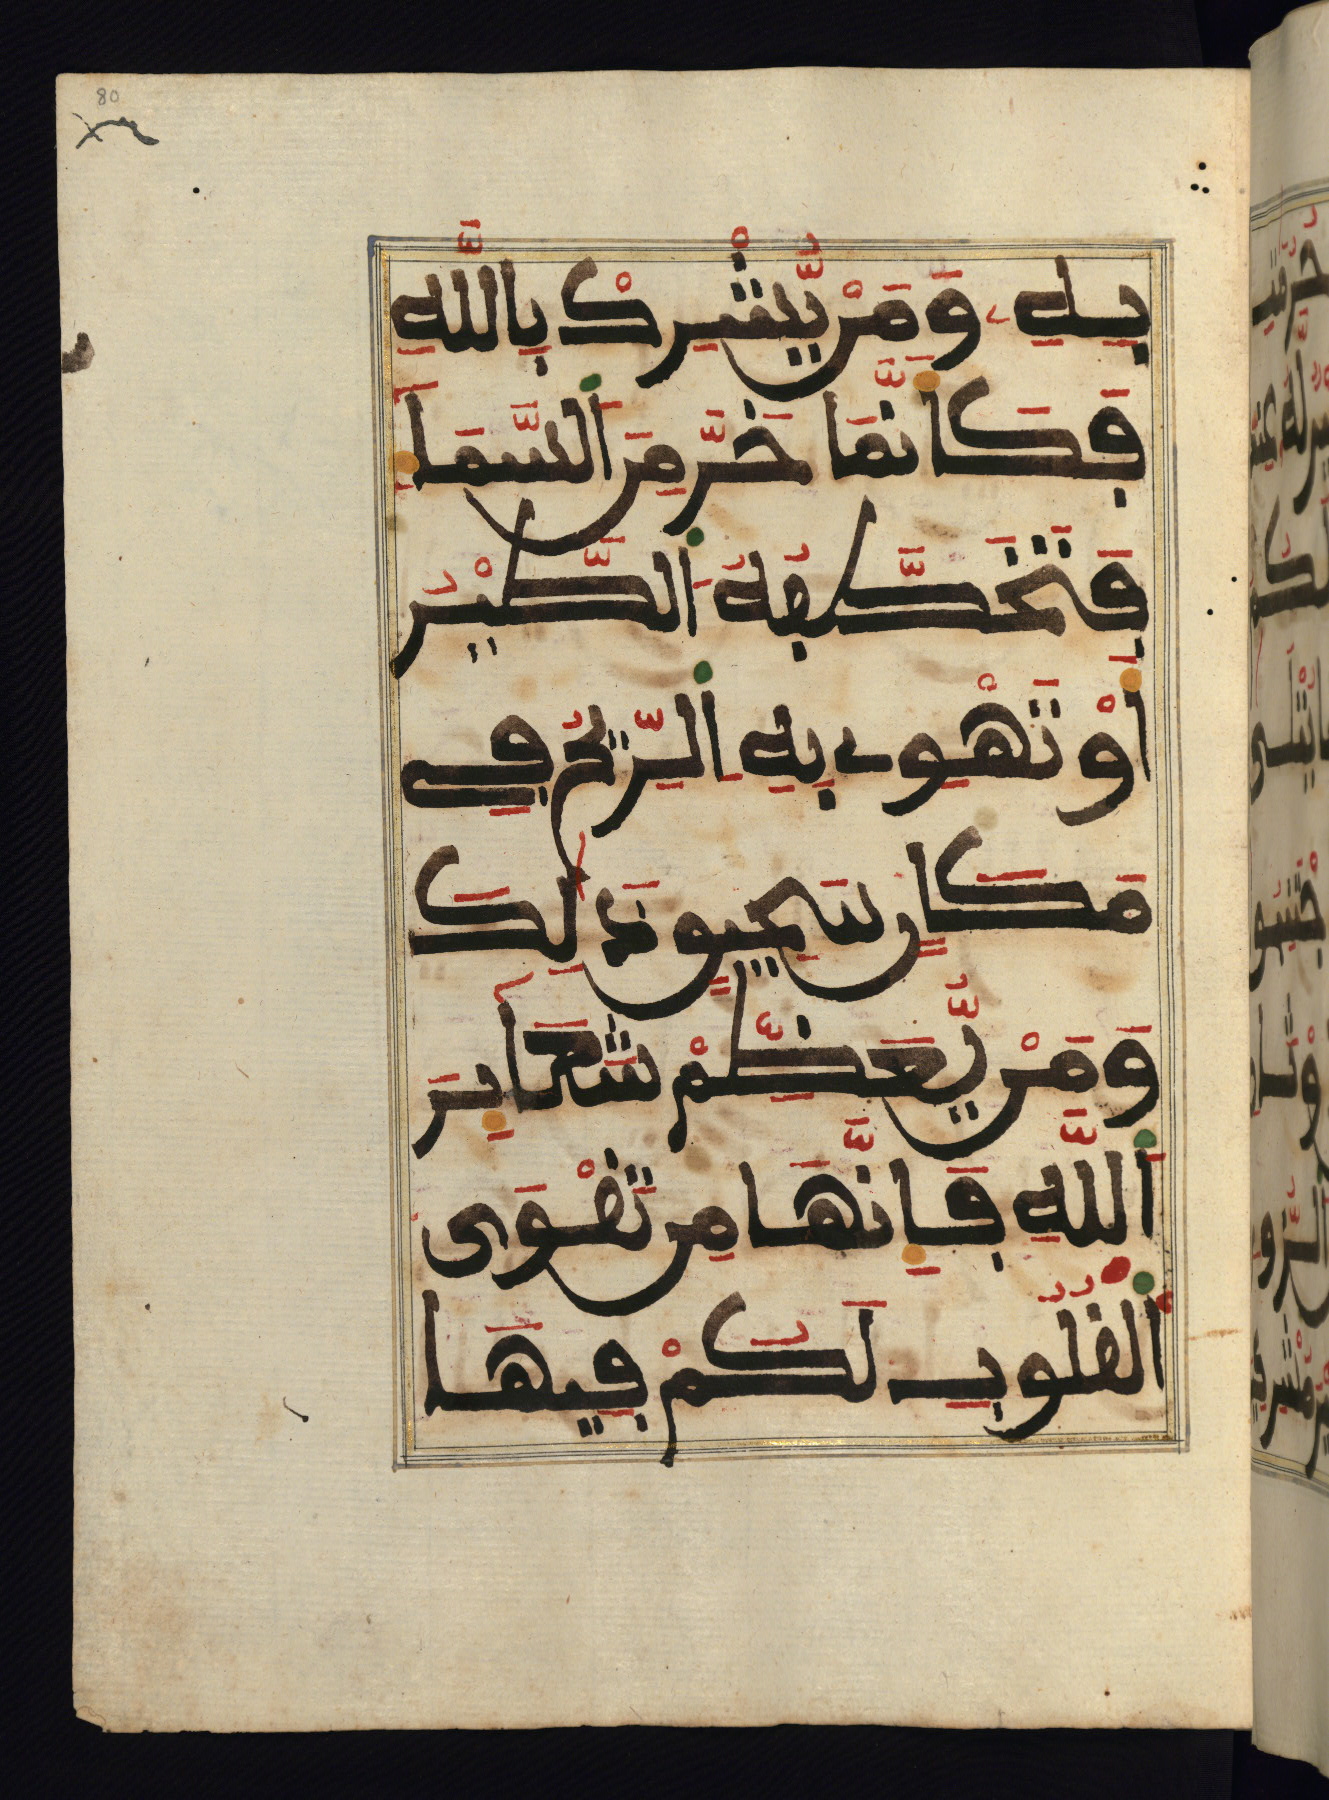 80
بِهِۦ وَمَنْ يُّشْرِكْ بِاللَّهِ
فَكَأَنَّمَا خَرَّ مِنَ اَلسَّمَا
فَتَخَطَّفُهُ اُلطَّيْرُ
أَوْ تَهْوِے بِهِ اِلرِّيحُ فِے
مَكَانٍ سَحِيقٍ ذَٰلِكَ
وَمَنْ يُّعَظِّمْ شَعَٰٓئِرَ
اَللَّهِ فَإِنَّهَا مِن تَقْوَى
اَلْقُلُوبِ لَكُمْ فِيهَا